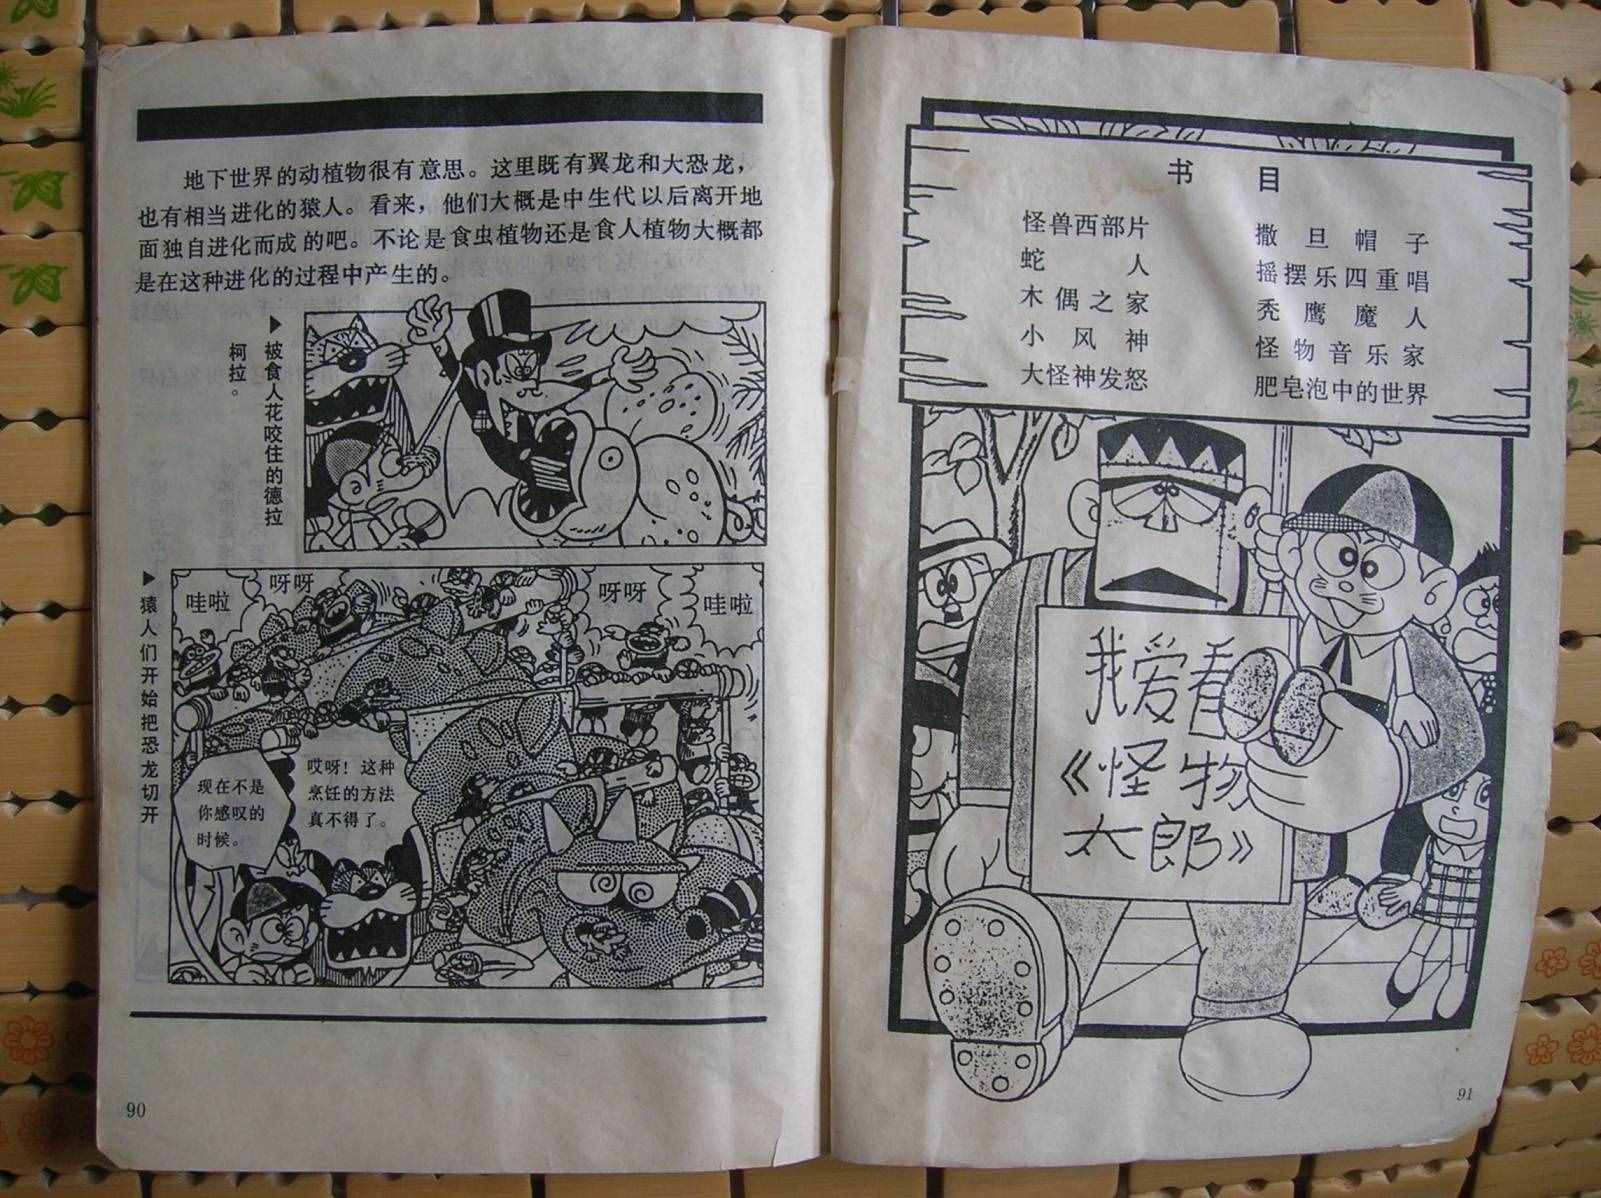 地下世界的动植物很有意思。这里既有翼龙和大恐龙，
也有相当进化的猿人。看来，他们大概是中生代以后离开地
面独自进化而成的吧。不论是食虫植物还是食人植物大概都
是在这种进化的过程中产生的。
▶被食人花咬住的德拉
柯拉。
▶猿人们开始把恐龙切开
哇啦
呀呀
呀呀
哇啦
哎呀！这种
烹饪的方法
真不得了。
现在不是
你感叹的
时候。
90
书 目
怪兽西部片
蛇 人
木偶之家
小风神
大怪神发怒
撒旦帽子
摇摆乐四重唱
秃鹰魔人
怪物音乐家
肥皂泡中的世界
我爱看
《怪物
太郎》
91